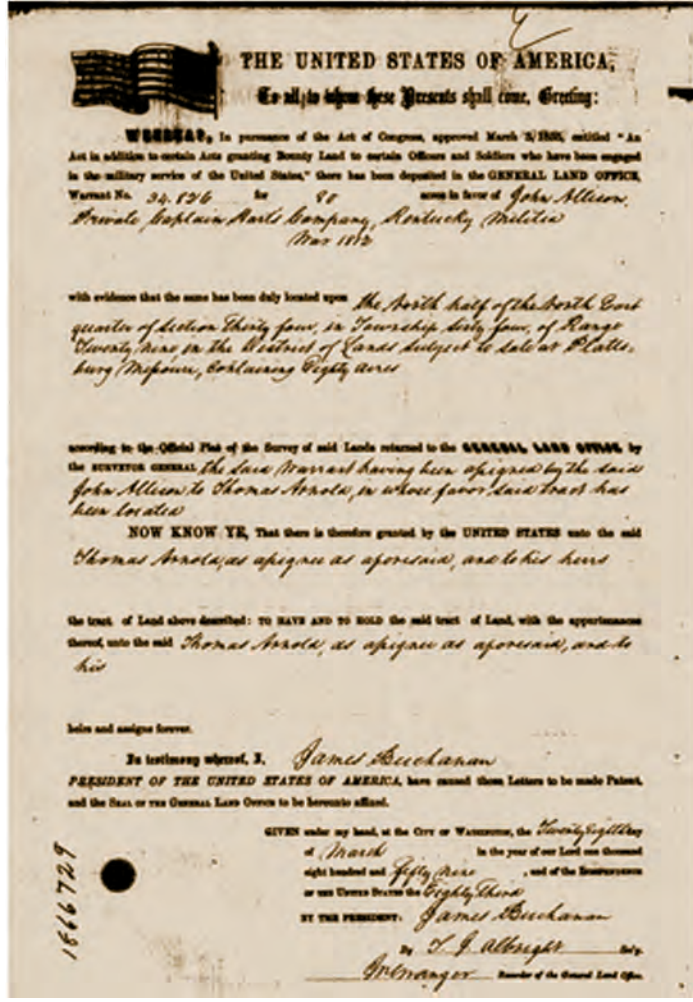 THE UNITED STATES OF AMERICA,
To all to whom these Presents shall come, Greeting:
WHEREAS, In pursuance of the Act of Congress, approved March 3, 1855, entitled "An
Act in addition to certain Acts granting Bounty Land to certain Officers and Soldiers who have been engaged
in the military service of the United States," there has been deposited in the GENERAL LAND OFFICE,
Warrant No. 34.826 for 80 acres in favor of John Allison,
Private Captain Harts Company, Kentucky Militia
War 1812
with evidence that the same has been duly located upon the North half of the North East
quarter of Section Thirty four, in Township Sixty four, of Range
Twenty nine, in the District of Lands subject to sale at Platts-
burg Missouri, Containing Eighty acres
according to the Official Plat of the Survey of said Lands returned to the GENERAL LAND OFFICE by
the SURVEYOR GENERAL the said Warrant having been assigned by the said
John Allison to Thomas Arnold, in whose favor said tract has
been located
NOW KNOW YE, That there is therefore granted by the UNITED STATES unto the said
Thomas Arnold, as assignee as aforesaid, and to his heirs
the tract of Land above described: TO HAVE AND TO HOLD the said tract of Land, with the appurtenances
thereof, unto the said Thomas Arnold, as assignee as aforesaid, and to
his
heirs and assigns forever.
In testimony whereof, I, James Buchanan
PRESIDENT OF THE UNITED STATES OF AMERICA, have caused these Letters to be made Patent,
and the SEAL OF THE GENERAL LAND OFFICE to be hereunto affixed.
GIVEN under my hand, at the CITY OF WASHINGTON, the Twenty Eighth day
of March in the year of our Lord one thousand
eight hundred and fifty nine, and of the INDEPENDENCE
OF THE UNITED STATES the Eighty Third
BY THE PRESIDENT: James Buchanan
By T. J. Albright Sec'y.
Recorder of the General Land Office.
1866729